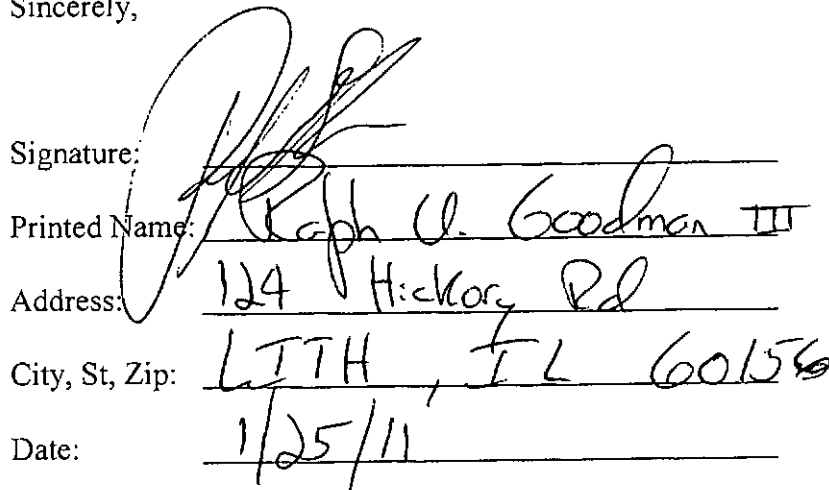 Sincerely,
Signature:
Printed Name: Ralph U. Goodman III
Address: 124 Hickory Rd
City, St, Zip: LITH, IL 60156
Date: 1/25/11